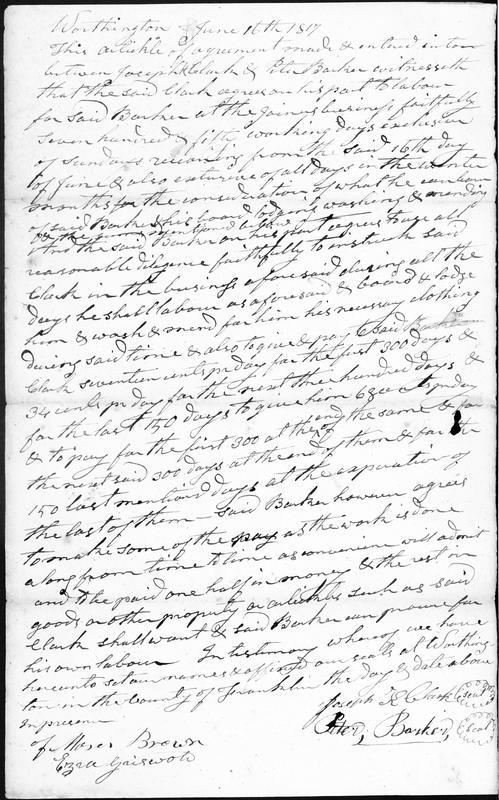 Worthington June 16th 1817
This article of agreement made & entered into
between Joseph R Clark & Peter Barker witnesseth
that the said Clark agrees on his part to labour
for said Barker at the Joiners business faithfully
seven hundred & fifty working days exclusive
of sundays reconing from the said 16th day
of June & also exclusive of all days in the winter
months for the consideration of what he can learn
of said Barker & his board lodging washing & mending
And the said Barker on his part agrees to use all
reasonable diligence faithfully to instruct said
Clark in the business aforesaid during all the
days he shall labour as aforesaid & board & lodge
him & wash & mend for him his necessary clothing
during said time & also to give & pay said
Clark seventeen cents pr day for the first 300 days &
34 cents pr day for the next three hundred days &
for the last 150 days to give him 68 cts pr day
& to pay for the first 300 at the end of the same & for
the next said 300 days at the end of them & for the
150 last mentiond days at the expiration of
the last of them - said Barker however agrees
to make some of the pay as the work is done
along from time to time as convenien will admit
and to be paid one half in money & the rest in
goods or other property or articles such as said
Clark shall want & said Barker can procure for
his own labour In testimony whereof we have
hereunto set our names & affixed our seals at Worthing
ton in the County of Franklin the day & date above
In presence
Joseph R Clark seal
Peter, Barker, seal
of Moses Brown
Ezra Griswold